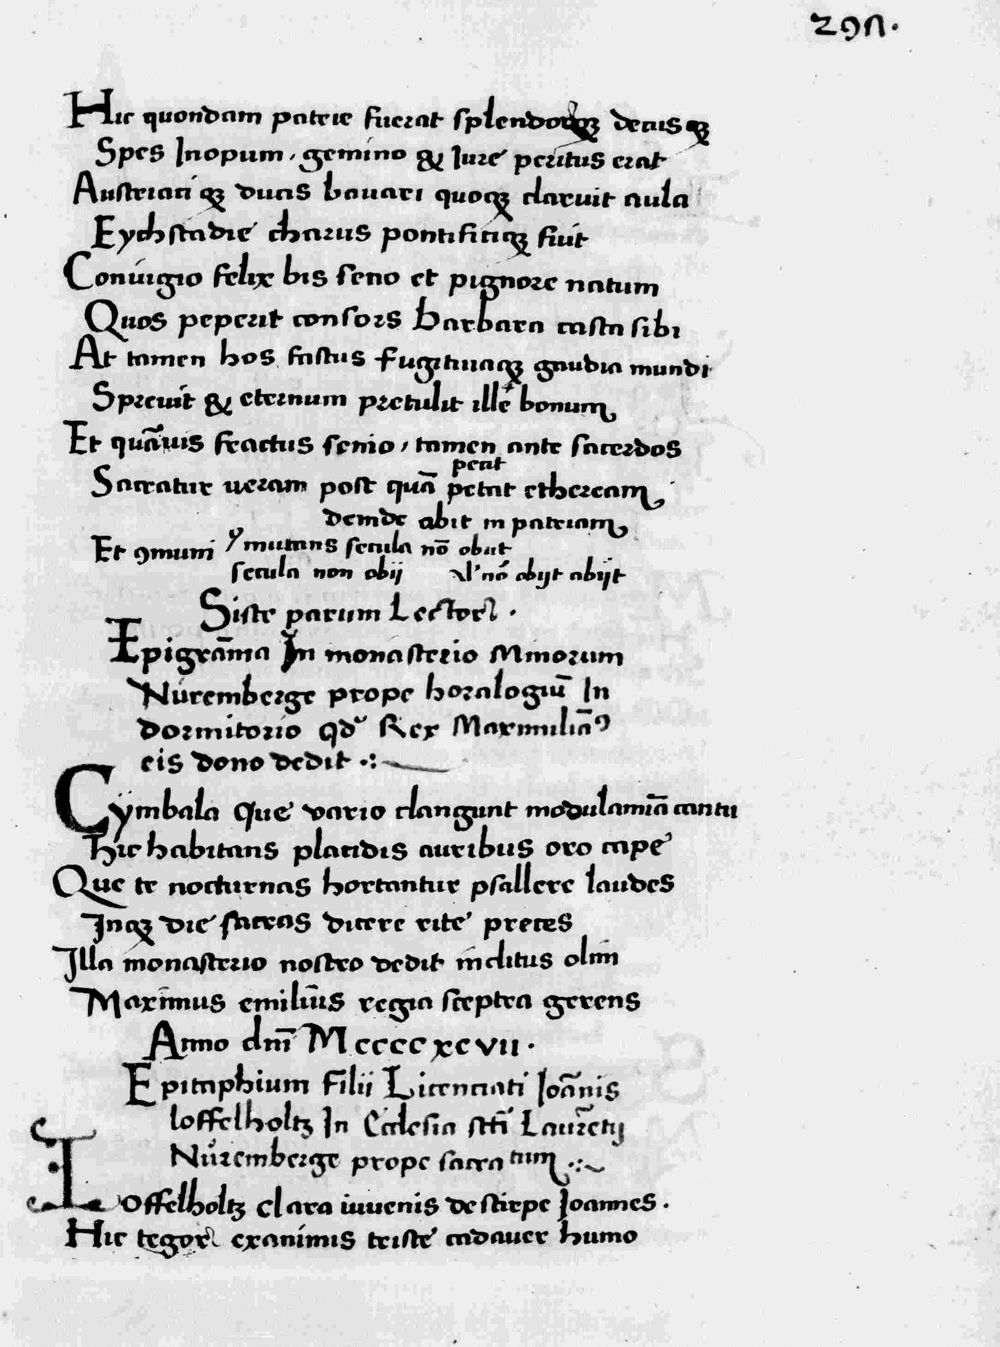 297.
Hic quondam patrie fuerat splendorqꝫ decusqꝫ
Spes Inopum, gemino & Iure peritus erat
Austriaciqꝫ ducis bavari quoqꝫ claruit aula
Eychstadie charus pontificiqꝫ fuit
Coniugio felix bis seno et pignore natum
Quos peperit consors barbara casta sibi
At tamen hos fastus fugitiuaqꝫ gaudia mundi
Spreuit & eternum pretulit ille bonum
Et quāuis fractus senio, tamen ante sacerdos
peciit
Sacratur ueram post quā petat etheream
deinde abit in patriam
Et ꝯmuni ꝯmutans secula nō obiit
secula non obij vl' nō abijt abijt
Siste parum Lector.
Epigrāma In monasterio Minorum
Nüremberge prope horalogiū In
dormitorio qd' Rex Maximiliāꝰ
eis dono dedit .:
Cymbala que vario clangunt modulamīa cantu
hic habitans placidis auribus oro cape
Que te nocturnas hortantur psallere laudes
Inqꝫ die sacras dicere rite preces
Illa monasterio nostro dedit inclitus olim
Maximus emilius regia sceptra gerens
Anno dnī Mccccxcvii.
Epitaphium filii Licenciati Ioānnis
loffelholtz In Ecclesia sctī Laurētij
Nůremberge prope sacratum .:
Loffelholtz clara iuuenis de stirpe Joannes.
Hic tegor exanimis triste cadauer humo